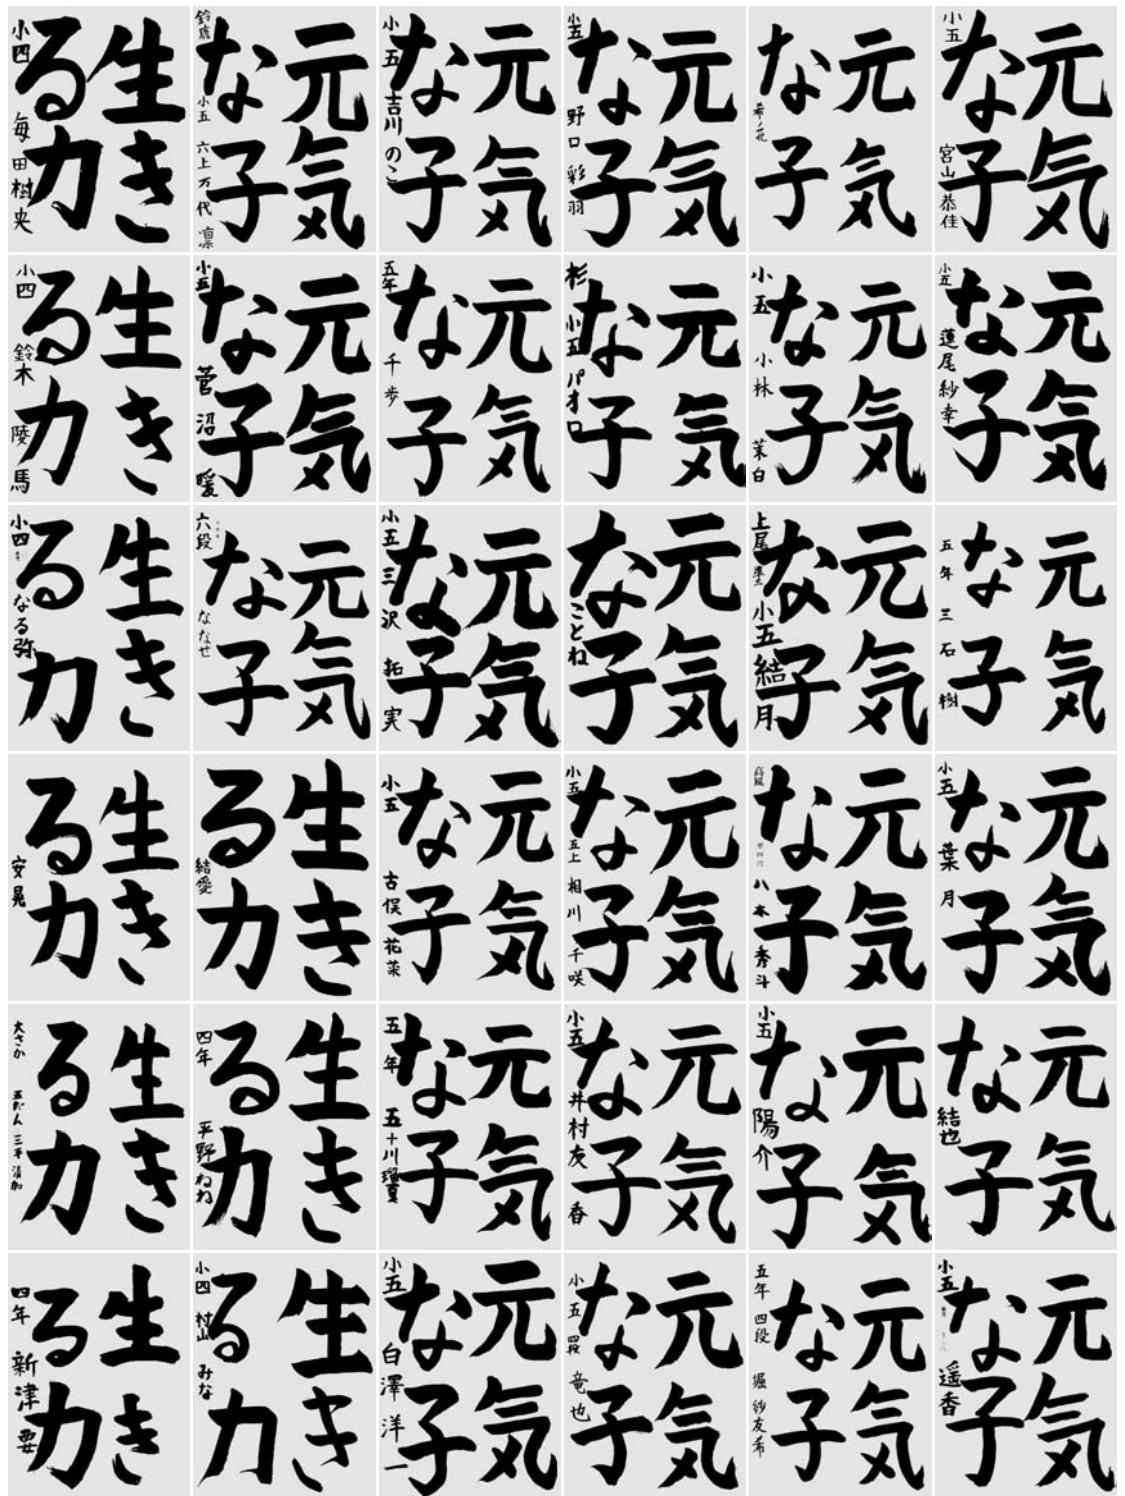 生き
る力
小四 毎田樹央
元気
な子
鈴鹿 小五 六上 万代 凛
元気
な子
小五 吉川のこ
元気
な子
小五 野口彩羽
元気
な子
希ノ花
元気
な子
小五 宮山恭佳
生き
る力
小四 鈴木陵馬
元気
な子
小五 菅沼暖
元気
な子
五年 千歩
元気
な子
杉 小五 パオロ
元気
な子
小五 小林茉白
元気
な子
小五 蓮尾紗幸
生き
る力
小四 なる弥
元気
な子
六段 ななせ
元気
な子
小五 三沢拓実
元気
な子
ことね
元気
な子
上尾 小五 結月
元気
な子
五年 三石樹
生き
る力
安晃
生き
る力
結愛
元気
な子
小五 古俣花菜
元気
な子
小五 五上 相川千咲
元気
な子
高風 八木秀斗
元気
な子
小五 葉月
生き
る力
大さか 五だん 三平
生き
る力
四年 平野ねね
元気
な子
五年 五十川瑠夏
元気
な子
小五 井村友香
元気
な子
小五 陽介
元気
な子
結也
生き
る力
四年 新津要
生き
る力
小四 村山みな
元気
な子
小五 白澤洋一
元気
な子
小五 竜也
元気
な子
五年 四段 堀紗友希
元気
な子
小五 遥香